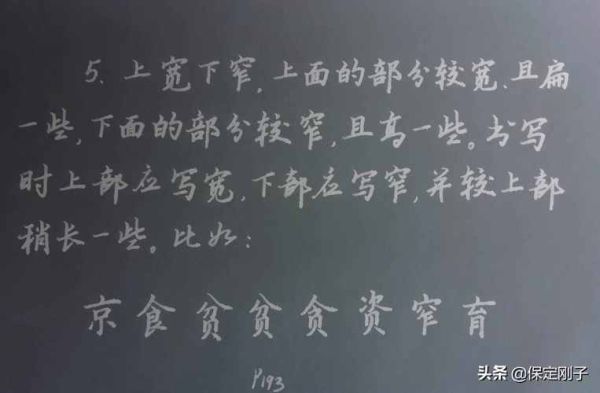 5、上宽下窄,上面的部分较宽、且扁
一些,下面的部分较窄,且高一些。书写
时上部应写宽,下部应写窄,并较上部
稍长一些。比如:
京食贫贫贪资窄育
P193
头条 @保定刚子